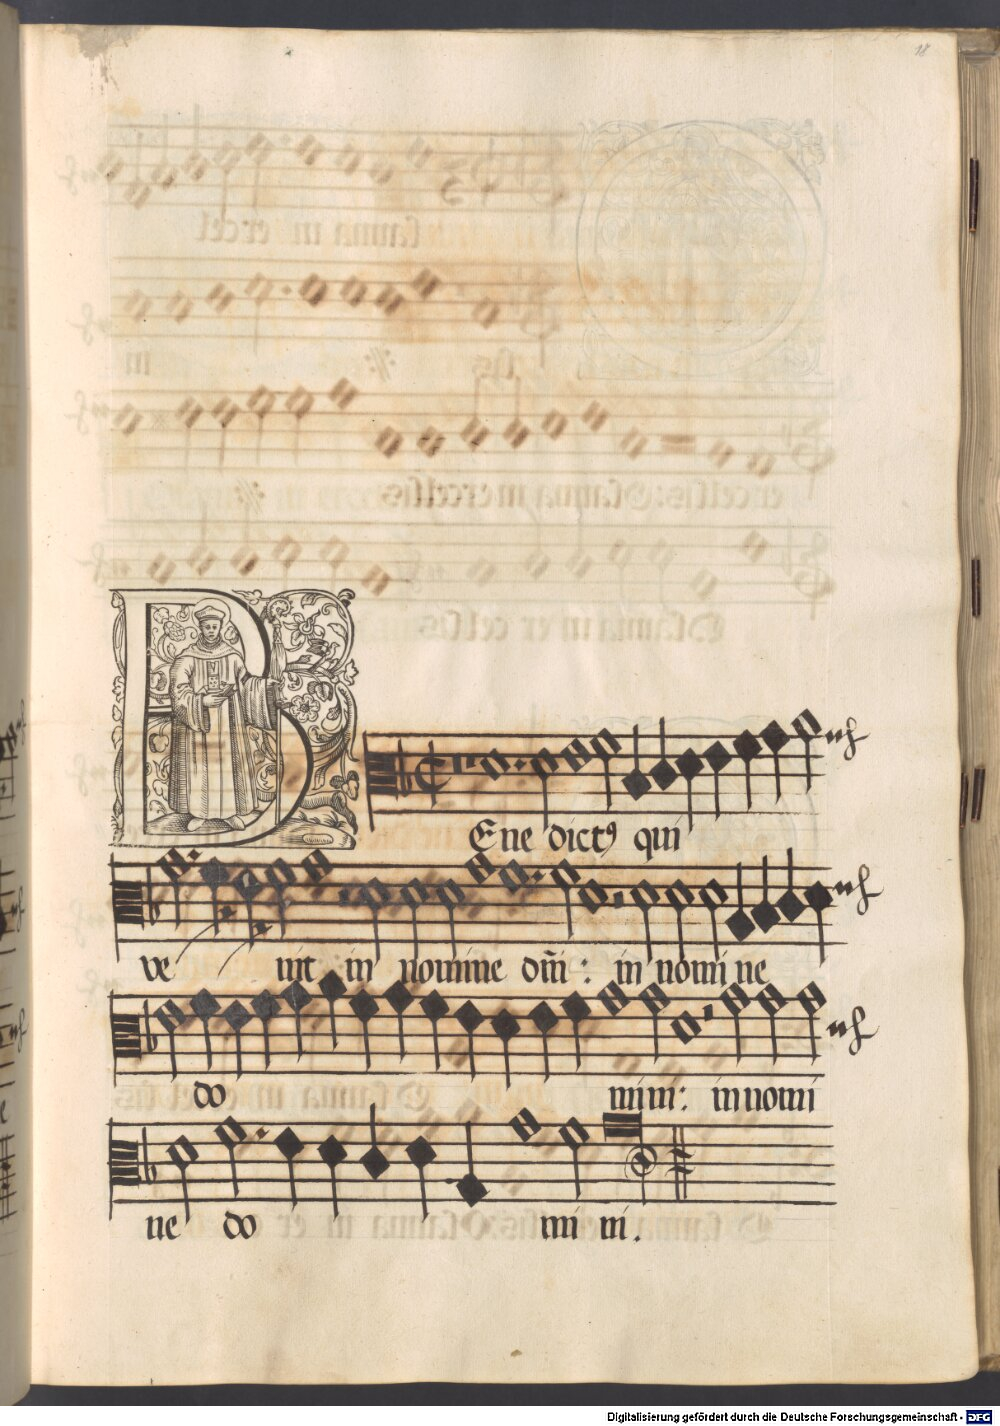 18
Bene dictꝰ qui
ve nit in nomine dn̄i : in nomi ne
do mini: in nomi
ne do mi ni.
Digitalisierung gefördert durch die Deutsche Forschungsgemeinschaft - DFG